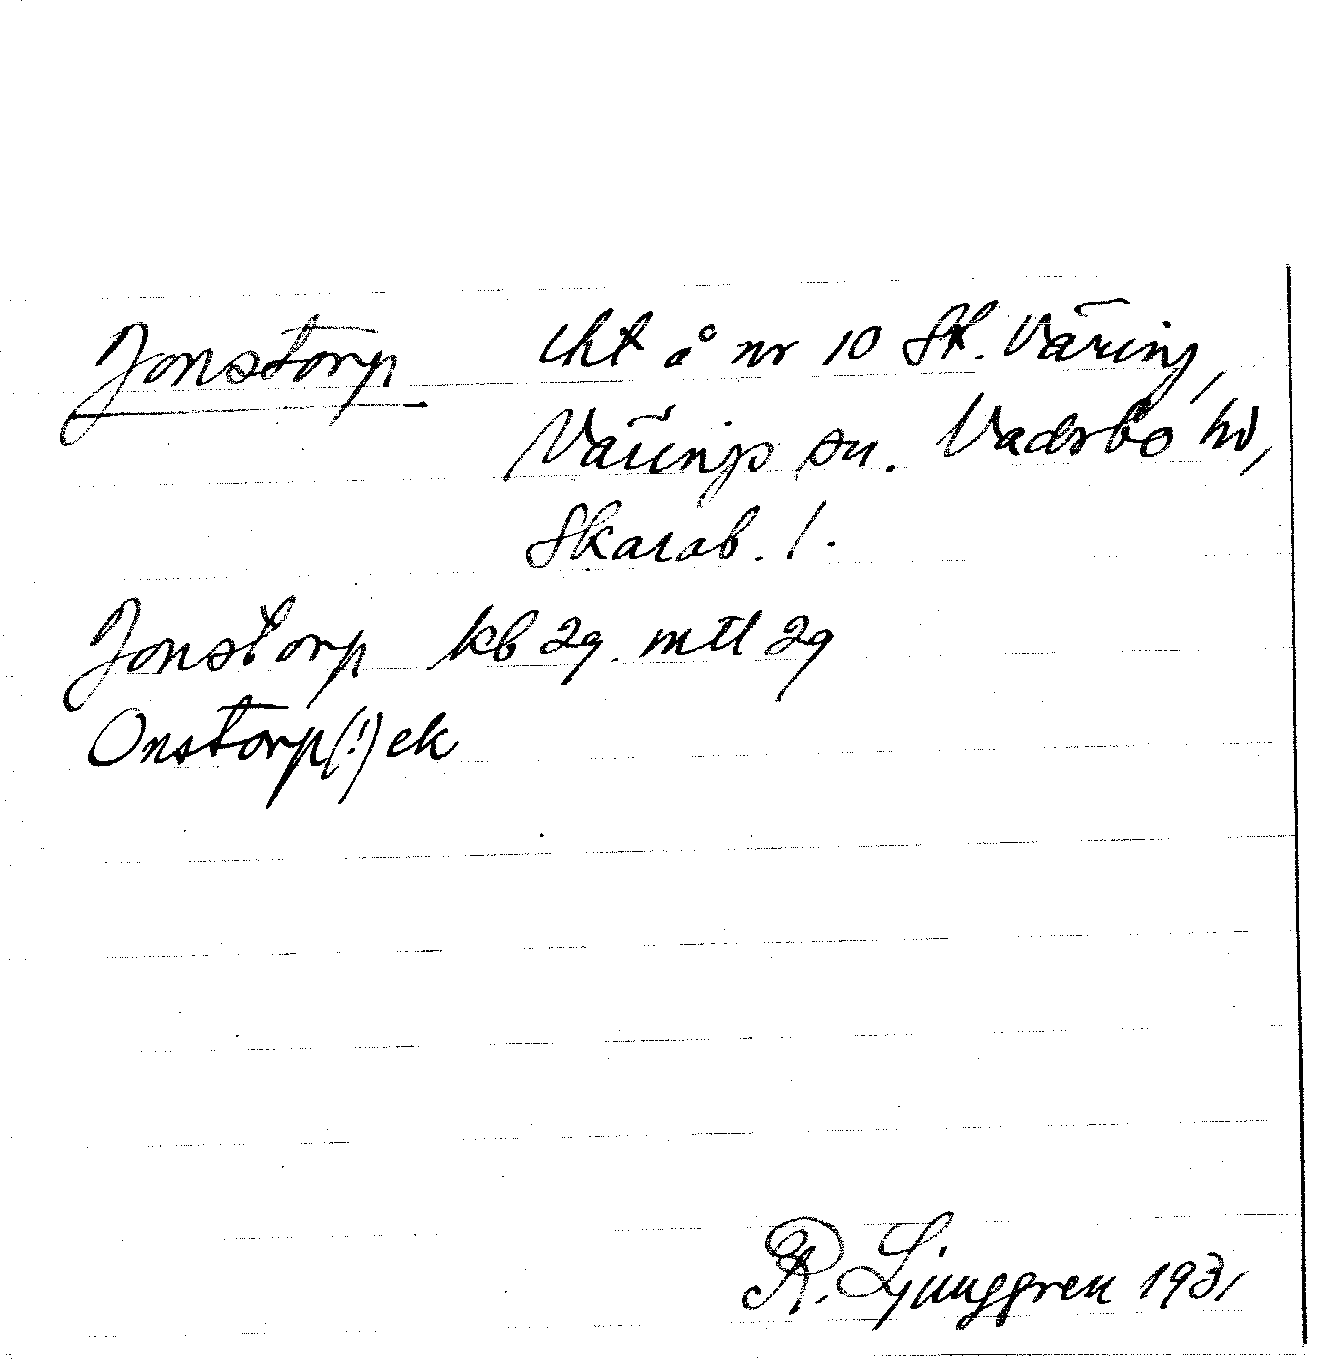 Jonstorp lht å nr 10 St. Väring,
Värings sn. Vadsbo hd,
Skarab. l.
Jonstorp kb 29. mtl 29
Onstorp(!) ek
R. Ljunggren 1931